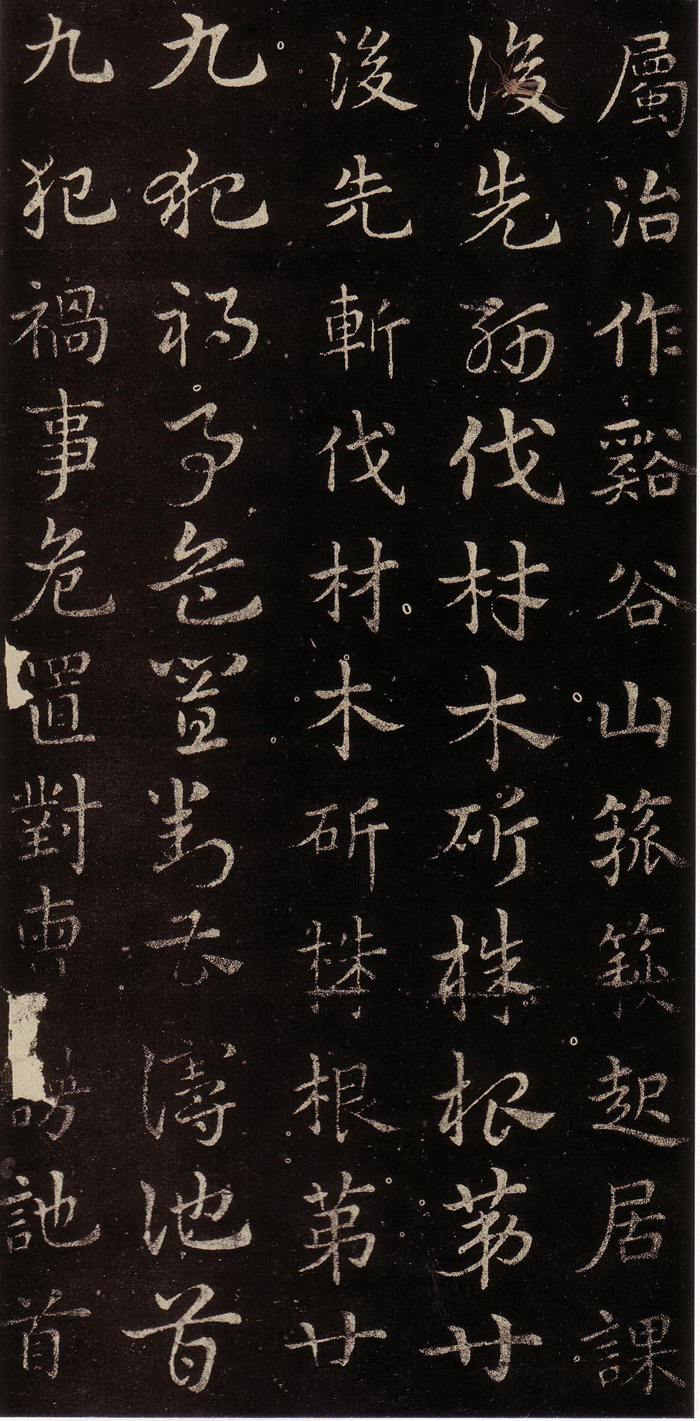 屬治作谿谷山箛起居課
後先斬伐材木斫株根第廿
後先斬伐材木斫株根第廿
九犯禍事危置對曹訑首
九犯禍事危置對曹訑首